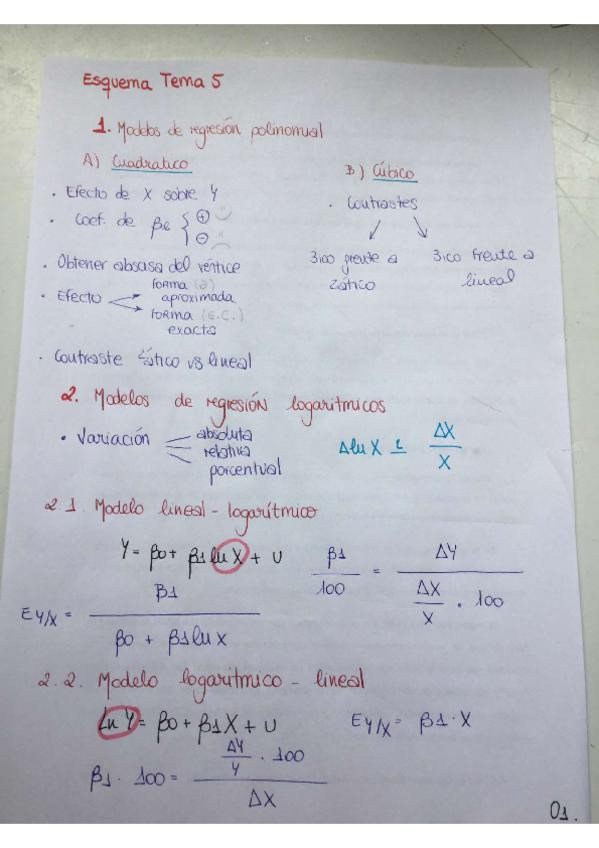 Esquema Tema 5
1. Modelos de regresión polinomial
A) Cuadratico
· Efecto de X sobre Y
· Coef. de β2 { ⊕ ⊖
· Obtener absisa del vértice
· Efecto
forma (∂) aproximada
forma (E.C.) exacta
· Contraste 2ático vs lineal
B) Cúbico
· Contrastes
3ico frente a 2ático
3ico frente a lineal
2. Modelos de regresión logaritmicos
· Variación
absoluta
relativa
porcentual
Δlu X ≅ ΔX / X
2.1. Modelo lineal - logarítmico
Y = β0 + β1 lu X + U
β1 / 100 = ΔY / (ΔX / X · 100)
E Y/X = β1 / (β0 + β1 lu X)
2.2. Modelo logaritmico - lineal
Ln Y = β0 + β1 X + U
E Y/X = β1 · X
β1 · 100 = (ΔY / Y · 100) / ΔX
01.